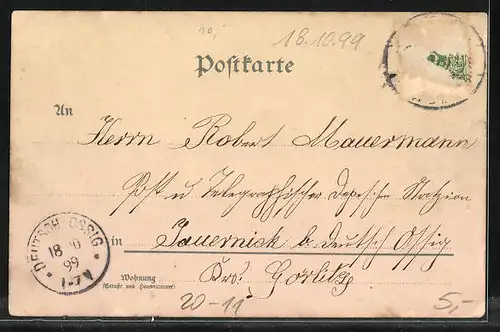 10,
18.10.99
Postkarte
An
Herrn Robert Mauermann
Post u Telegraphischer Depeschen Stazion
in Jauernick b. Deutsch Ossig
Wohnung
(Straße und Hausnummer)
Krs. Görlitz
DEUTSCH-OSSIG
18 10
99
1-7N
20-11
5,-